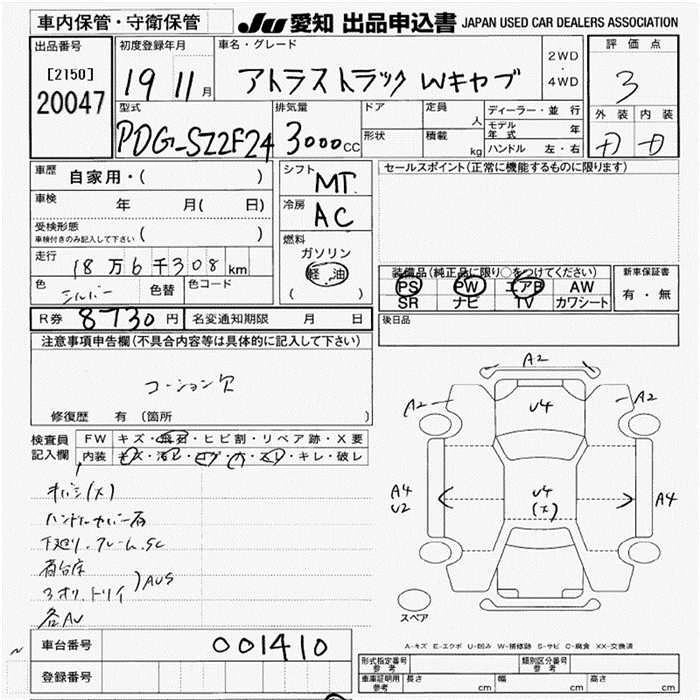 車内保管・守衛保管
JU 愛知 出品申込書 JAPAN USED CAR DEALERS ASSOCIATION
出品番号
[2150]
20047
初度登録年月
19 11月
車名・グレード
アトラストラック Wキャブ
2WD
・
4WD
評価点
3
外装 内装
型式
PDG-SZ2F24
排気量
3000CC
ドア
形状
定員
人
積載
kg
ディーラー・並行
モデル年式 年
ハンドル 左・右
車歴
自家用・( )
車検
年 月( 日)
受検形態
車検付きのみ記入して下さい ( )
走行
18万6千308km
色
シルバー
色替
色コード
シフト
MT
冷房
AC
燃料
ガソリン
軽油
( )
セールスポイント(正常に機能するものに限ります)
装備品(純正品に限り○をつけてください)
PS PW エアB AW
SR ナビ TV カワシート
新車保証書
有・無
R券 8730円
名変通知期限 月 日
後日品
注意事項申告欄(不具合内容等は具体的に記入して下さい)
コーション欠
修復歴 有 (箇所 )
検査員
記入欄
FW キズ・飛石・ヒビ割・リペア跡・X要
内装 キズ・汚レ・コゲ・穴・スレ・キレ・破レ
下廻り.フレーム.SC
荷台床
3オリ.トリイ
)AUS
各AU
A2
A2
A2
U4
A4
U2
U4
(X)
A4
スペア
A-キズ E-エクボ U-凹み W-補修跡 S-サビ C-腐食 XX-交換済
車台番号
001410
登録番号
形式指定番号
参考
類別区分番号
参考
車庫証明用
参考
長さ cm
幅 cm
高さ cm